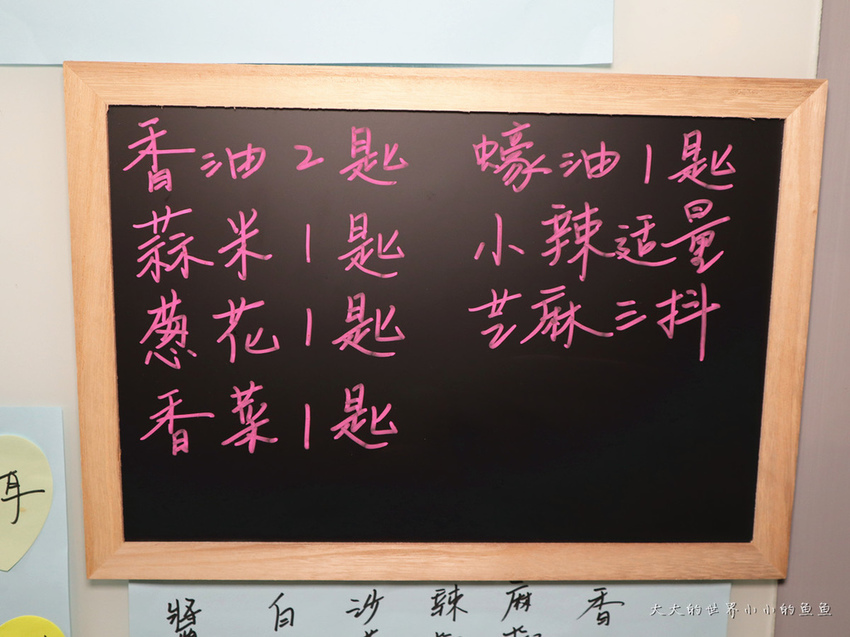 香油2匙
蒜米1匙
蔥花1匙
香菜1匙
蠔油1匙
小辣适量
芝麻三抖
耳
醬 白 沙 辣 麻 香
大大的世界小小的魚魚